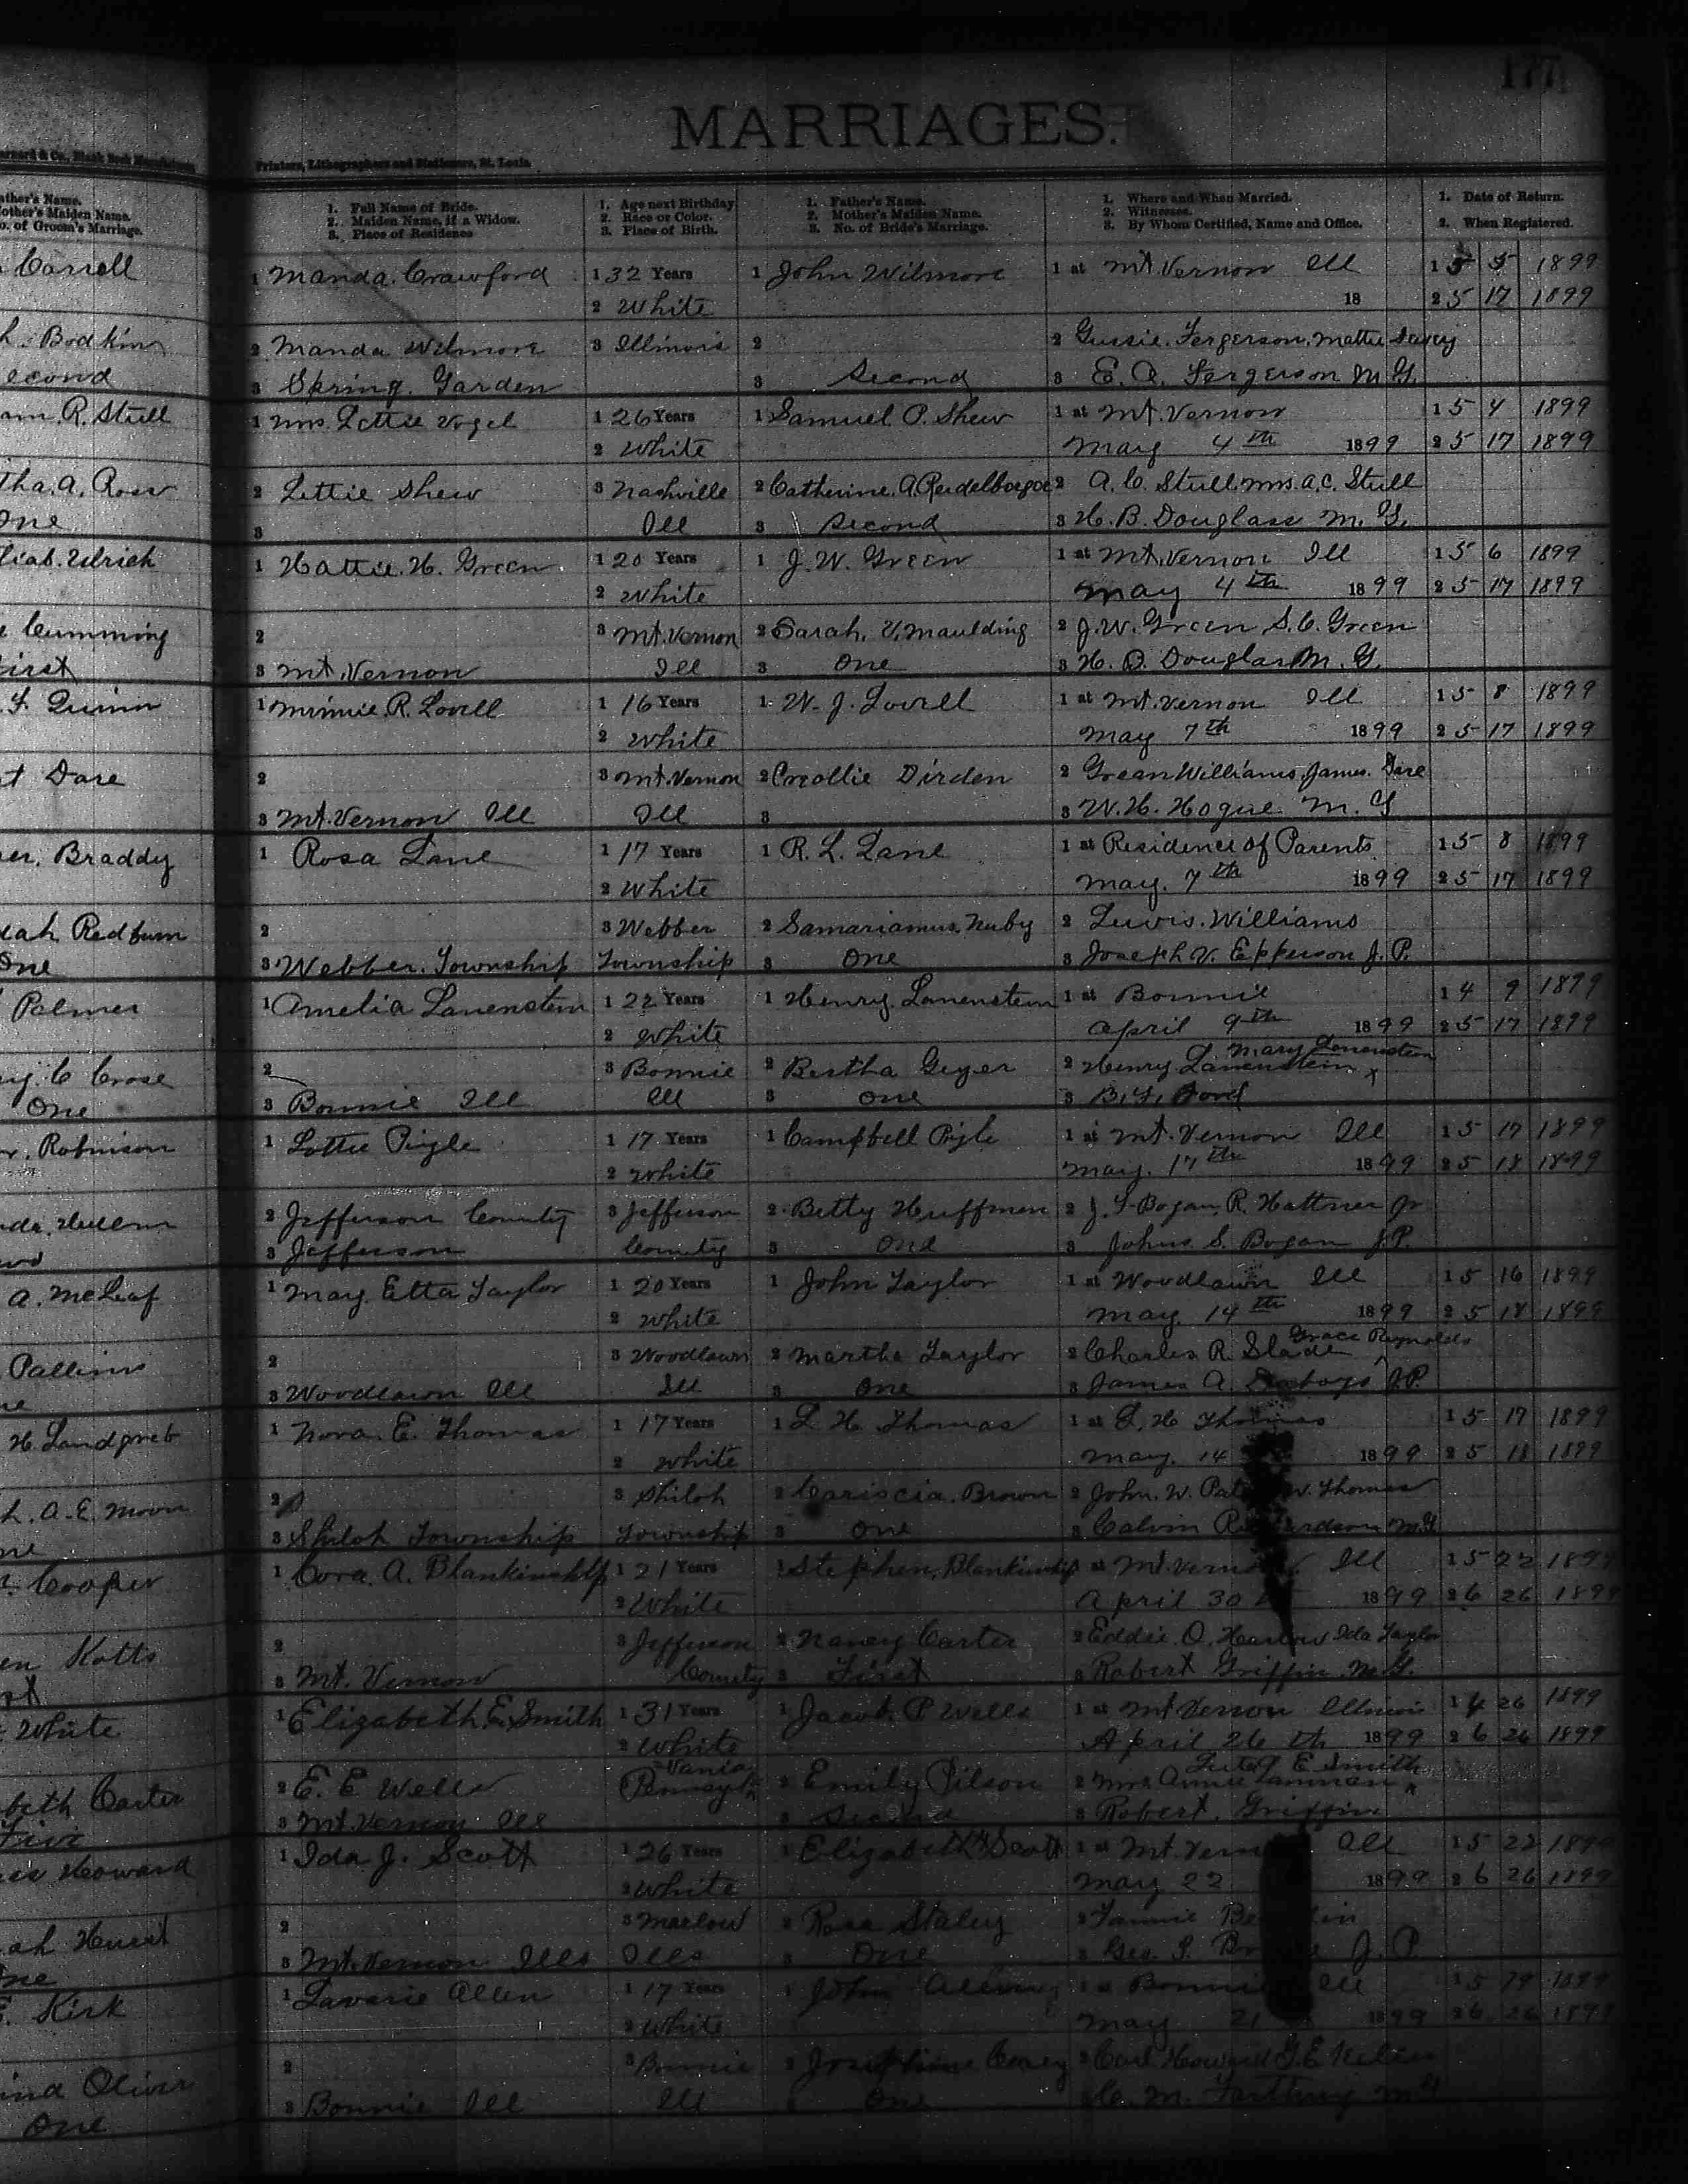 177
MARRIAGES.
Printers, Lithographers and Stationers, St. Louis.
ather's Name.
other's Maiden Name.
o. of Groom's Marriage.
1. Full Name of Bride.
2. Maiden Name, if a Widow.
3. Place of Residence
1. Age next Birthday
2. Race or Color.
3. Place of Birth.
1. Father's Name.
2. Mother's Maiden Name.
3. No. of Bride's Marriage.
1. Where and When Married.
2. Witnesses.
3. By Whom Certified, Name and Office.
1. Date of Return.
2. When Registered.
Carrell 1 Manda Crawford 1 32 Years 1 John Wilmore 1 at Mt Vernon Ill 1 5 5 1899
2 White 18 2 5 17 1899
h. Bodkin 2 Manda Wilmore 3 Illinois 2 2 Gussie Fergerson, Mattie
econd 3 Spring Garden 3 Second 3 E. A. Fergerson M G.
am R. Stull 1 Mrs. Lettie Vogel 1 26 Years 1 Samuel P. Shew 1 at Mt. Vernon 1 5 4 1899
2 White May 4th 1899 2 5 17 1899
tha. A. Ross 2 Lettie Shew 3 Nashville 2 Catherine A. 2 A. C. Stull Mrs. A. C. Stull
One 3 Ill 3 Second 3 H. B. Douglass M. G.
liab. Ulrich 1 Hattie H. Green 1 20 Years 1 J. W. Green 1 at Mt. Vernon Ill 1 5 6 1899
2 White May 4th 1899 2 5 17 1899
Cumming 2 3 Mt. Vernon 2 Sarah V. Maulding 2 J. W. Green S. C. Green
irst 3 Mt. Vernon Ill 3 One 3 H. B. Douglas M. G.
F. Quinn 1 Minnie R. Lovell 1 16 Years 1 W. J. Lovell 1 at Mt. Vernon Ill 1 5 8 1899
2 White May 7th 1899 2 5 17 1899
t Dare 2 3 Mt. Vernon 2 Creollie Dirden 2 Green Williams, James Dare
3 Mt. Vernon Ill Ill 3 3 W. H. Hogue M. G
er, Braddy 1 Rosa Lane 1 17 Years 1 R. L. Lane 1 at Residence of Parents 1 5 8 1899
2 White May 7th 1899 2 5 17 1899
dah Redburn 2 3 Webber 2 Samariamus Nuby 2 Lewis Williams
One 3 Webber Township Township 3 One 3 Joseph V. Epperson J. P.
Palmer 1 Amelia Lanenstein 1 22 Years 1 Henry Lanenstein 1 at Bonnie 1 4 9 1899
2 White April 9th 1899 2 5 17 1899
Mary Lanenstein
y. C Crose 2 3 Bonnie 2 Bertha Geyer 2 Henry Lanenstein x
One 3 Bonnie Ill Ill 3 One 3 B. F. Ford
r. Robinson 1 Lottie Pigle 1 17 Years 1 Campbell Pigle 1 at Mt. Vernon Ill 1 5 17 1899
2 White May 17th 1899 2 5 18 1899
2 Jefferson County 3 Jefferson 2 Betty Huffman 2 J. S. Bogan, R. Hattner Jr
3 Jefferson County 3 One 3 Johns S. Bogan J.P.
A. McLeaf 1 May Etta Taylor 1 20 Years 1 John Taylor 1 at Woodlawn Ill 1 5 16 1899
2 White May 14th 1899 2 5 18 1899
Grace Reynolds
Pallins 2 3 Woodlawn 2 Martha Taylor 2 Charles R. Slade
ne 3 Woodlawn Ill Ill 3 One 3 James A. J.P.
H. Landgreb 1 Nora E. Thomas 1 17 Years 1 L H Thomas 1 at L. H Thomas 1 5 17 1899
2 White May 14 1899 2 5 18 1899
h. A. E. Moon 2 3 Shiloh 2 Criscia Brown 2 John. W. Pat W. Thomas
ne 3 Shiloh Township Township 3 One 3 Calvin Ri ardson M.G
Cooper 1 Cora A. Blankinship 1 21 Years 1 Stephen Blankinship 1 at Mt. Vernon Ill 1 5 22 1899
2 White April 30 1899 2 6 26 1899
en Kotts 2 3 Jefferson 2 Nancy Carter 2 Eddie O. Harlow Ida Taylor
st 3 Mt. Vernon County 3 First 3 Robert Griffin M.G.
White 1 Elizabeth E. Smith 1 31 Years 1 Jacob P Wells 1 at Mt Vernon Illinois 1 4 26 1899
2 White April 26 th 1899 2 6 26 1899
vania E Smith
beth Carter 2 E. E Wells 3 Pennsyl 2 Emily Pilson 2 Mrs Annie x
Five 3 Mt. Vernon Ill 3 Second 3 Robert Griffin
Howard 1 Ida J. Scott 1 26 Years 1 Elizabeth Scott 1 at Mt. Vern Ill 1 5 22 1899
2 White May 22 1899 2 6 26 1899
ah Hurst 2 3 Marlow 2 Rosa Staley 2 Fannie Be in
One 3 Mt. Vernon Ills Ills 3 One 3 Geo. S. J. P.
Kirk 1 Lavarie Allen 1 17 Years 1 John 1 at Bonnie Ill 1 5 29 1899
2 White May 21 1899 2 6 26 1899
2 3 Bonnie 2 Josephine 2 Carl Howard
ind Oliver 3 Bonnie Ill Ill 3 One 3 C. M. Farthing M G
One